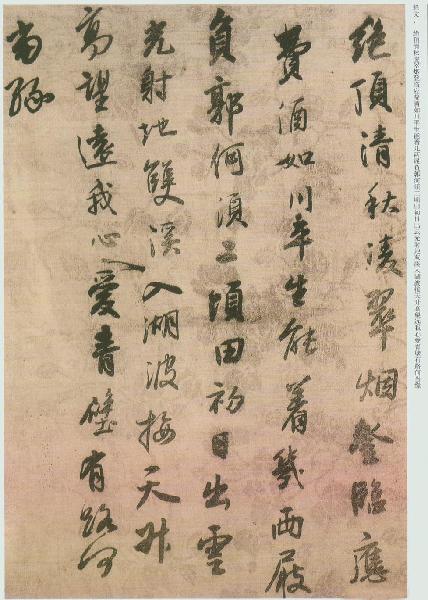 絕頂清秋凌翠烟登臨應
費酒如川平生能着幾两屐
負郭何須二頃田初日出雲
光射地雙溪入湖波接天升
高望遠我心愛青壁有路何
當緣